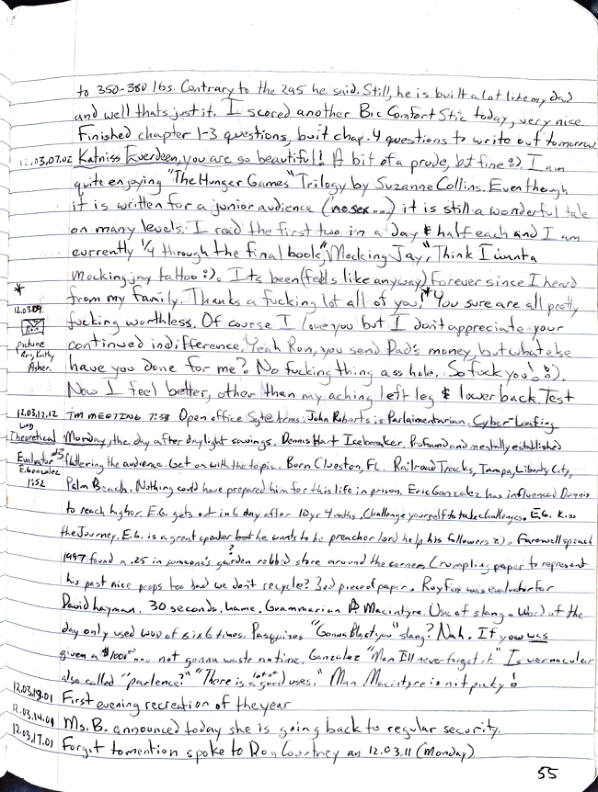 to 350-380 lbs. Contrary to the 245 he said. Still, he is built a lot like my dad
and well thats just it. I scored another Bic Comfort Stic today, very nice
Finished chapter 1-3 questions, but chap. 4 questions to write out tomorrow
12.03.07.02 Katniss Everdeen, you are so beautiful! A bit of a prude, but fine :). I am
quite enjoying "The Hunger Games" Trilogy by Suzanne Collins. Even though
it is written for a junior audience (no sex...) it is still a wonderful tale
on many levels. I read the first two in a day & half each and I am
currently 1/4 through the final book, "Mocking Jay", Think I want a
mocking jay tattoo :). Its been (feels like anyway) forever since I heard
* from my family. Thanks a fucking lot all of you! * You sure are all pretty
12.03.09 fucking worthless. Of course I love you but I don't appreciate your
picture continued indifference. Yeah Ron, you send Dad's money, but what else
Kathy have you done for me? No fucking thing ass hole. So fuck you! :).
Asher. Now I feel better, other than my aching left leg & lower back. Test
12.03.12.12 TM MEETING 7:53 Open office Sgt@Arms. John Roberts is Parlaimentarian. Cyber-Loafing
WOD Theoretical Monday, the day after daylight savings. Dennis Hart Icebreaker. Profound and mentally established
Evaluator #3 the audience. Get on with the topic. Born Clueston, FL. Railroad Tracks, Tampa, Liberty City,
E. Gonzalez Palm Beach. Nothing could have prepared him for this life in prison. Eric Gonzalez has influenced Dennis
1:52 to reach higher. E.G. gets out in 6 day after 10yr 4 mths. Challenge yourself to take challenges. E.G. Kiss
the Journey. E.G. is a great speaker but he wants to be preacher lord help his followers :). Farewell speach
1997 found a .25 in someone's garden? robbed store around the corner. Crumpling paper to represent
his past nice props too bad we don't recycle? 3rd piece of paper. Roy Fox was evaluator for
David Layman. 30 seconds. Lame. Grammarian Macintyre. Use of slang. Word of the
day only used WOD of 6 times. "Gonna you" slang? Nah. If you was
given a $1000 ... not gonna waste no time. Gonzalez "Man I'll never forget it" Is vernacular
also called "parlence?" "There is a lot of good uses." Man Macintyre is not picky!
12.03.13.01 First evening recreation of the year
12.03.14.01 Ms. B. announced today she is going back to regular security.
12.03.17.01 Forgot to mention spoke to Ron Courtney on 12.03.11 (Monday)
55